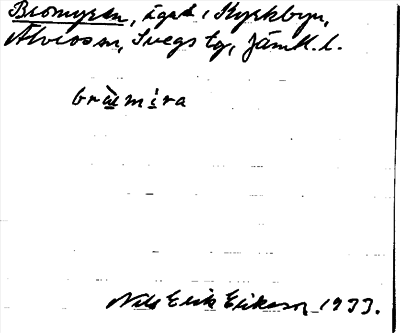 Bromyran, ägad i Kyrkbyn,
Älvros sn, Svegs tg, Jämtl. l.
bràmira
Nils Erik Eriksson 1933.